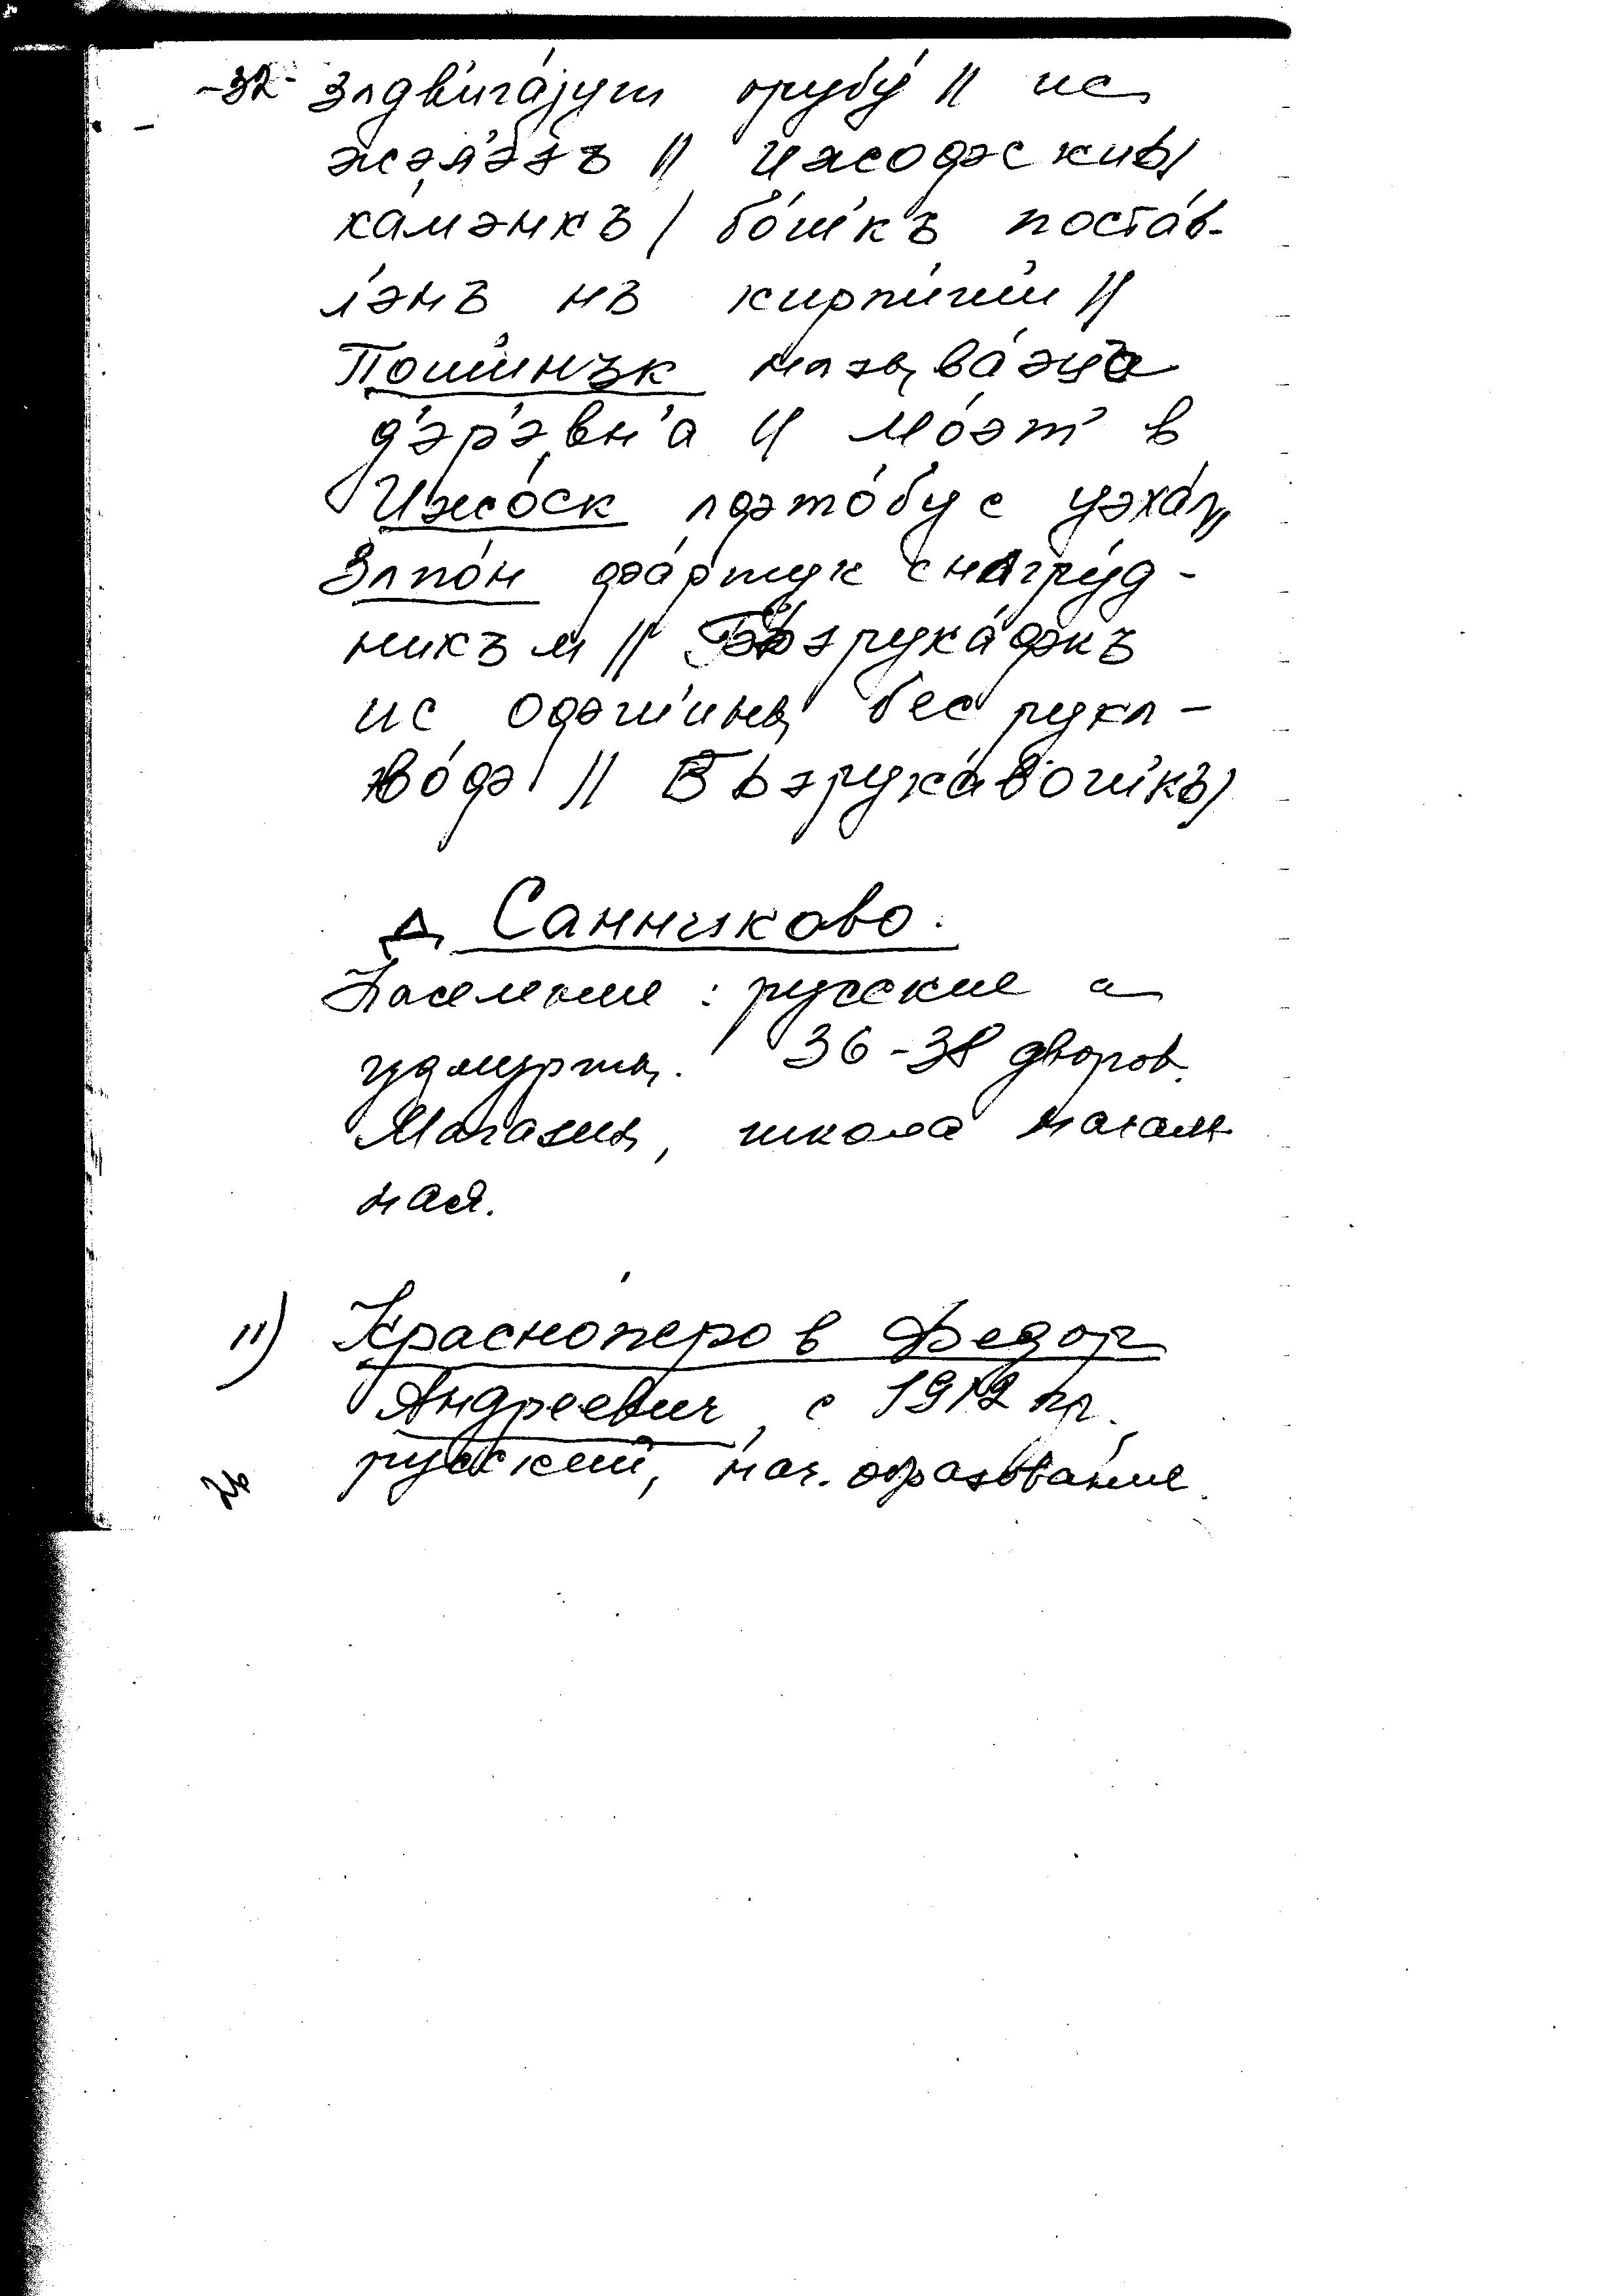 -32- зʌдв'ига́јут трубу́ // ис
жэл'э́зъ // ижофскиы
ка́мэнкъ / бо́ш'къ поста́в-
л'энъ нъ кирпи́ч'и́и //
Пош'инък нʌзыва́эцъ
д'эр'э́вн'а // Мо́эт в
Ижо́ск ʌфто́бус уэха́л //
Зʌпо́н фа́ртук с нʌгру́д-
никъм // Бъзрука́фкъ
ис офч'ины бес рукʌ-
во́ф // Бьзрука́воч'икъ /
д. Санниково.
Население: русские и
удмурты. 36-38 дворов.
Магазин, школа началь
ная.
11) Краснопёров Федор
Андреевич, с 1912 гр.
русский, нач. образование.